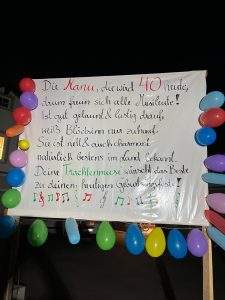 Die Manu, die wird 40 heute,
darum freun sich alle Musileute!
Ist gut gelaunt & lustig drauf,
weiß Blödsinn nur zuhauf.
Sie ist nett & auch charmant
natürlich bestens im Land bekannt.
Deine Trachtenmusi wünscht das Beste
zu deinem heutigen Geburtstagsfeste!